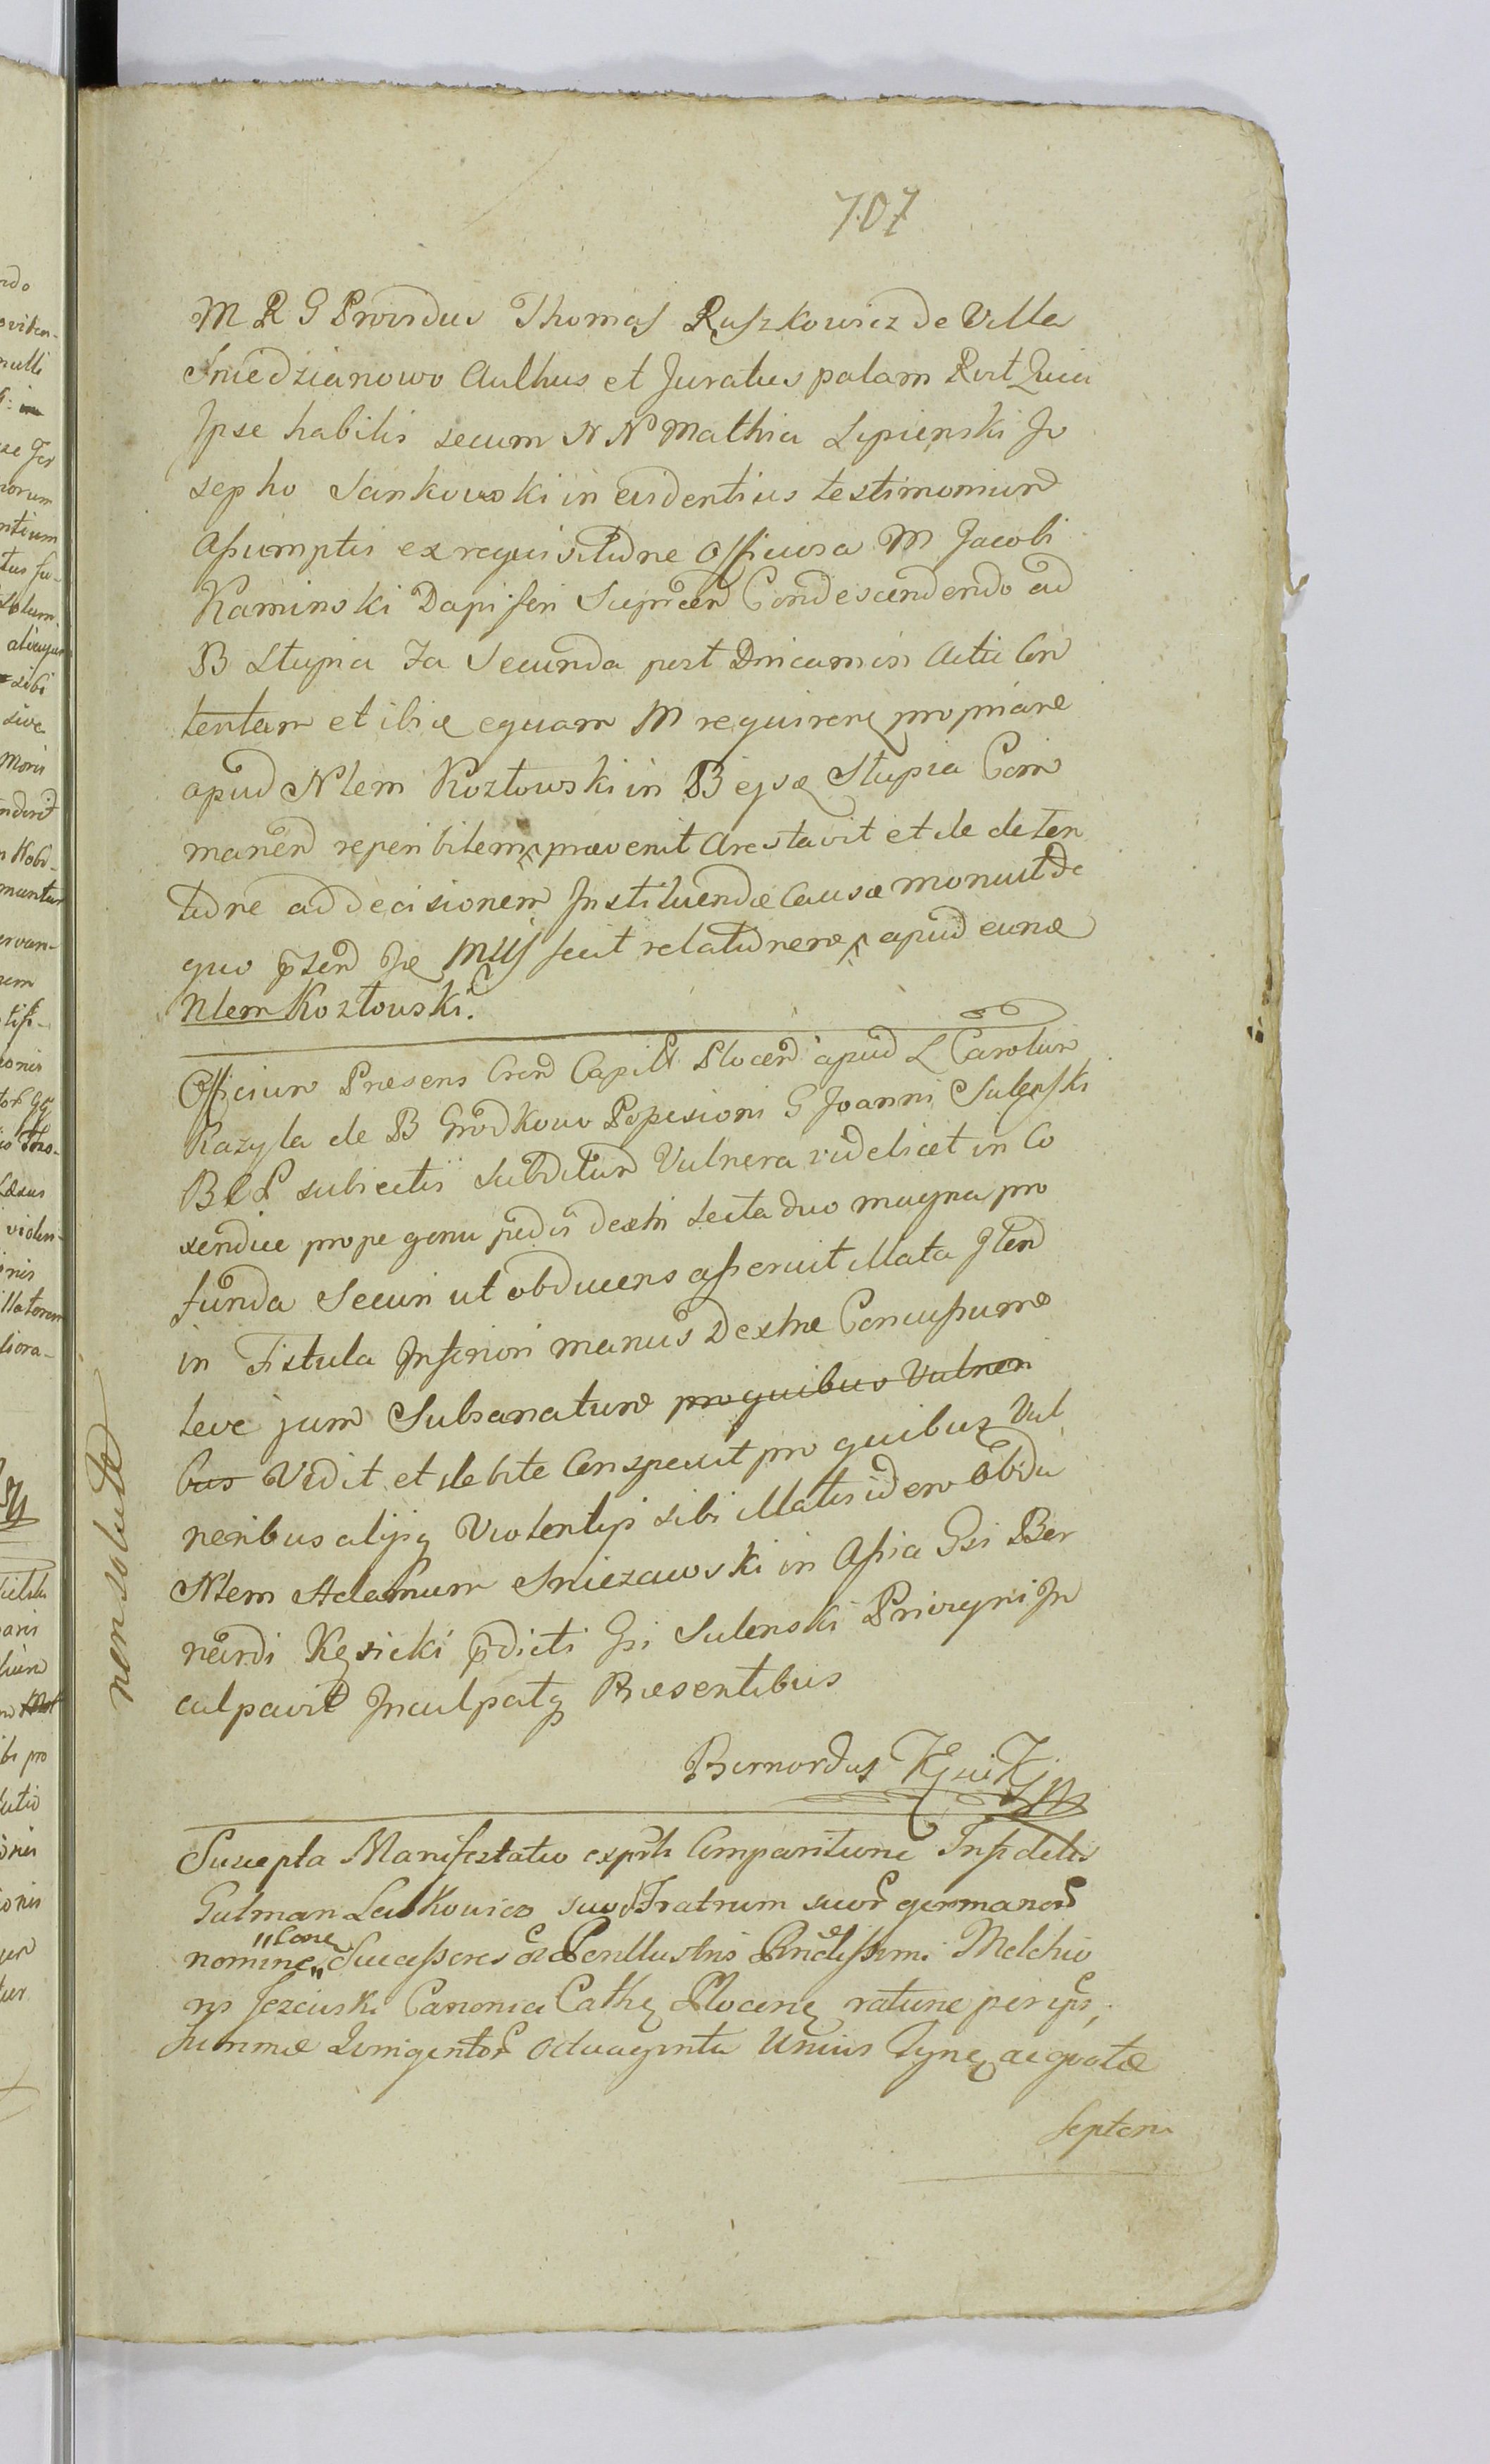 707
M R G Providus Thomas Ruszkowicz de Villa
Sniedzianowo Aulhus et Juratus palam Rvit Quia
Ipse habitis secum N N Mathia Lipienski Jo
sepho Sankowski in evidentius testimonium
assumptis ex requisitione Officiosa M Jacobi
Kaminski Dapiferi Condescendendo ad
B Stupia Fa Secunda post Dnicam Actu Con
tentam et ibiq equam M requirens propriam
apud Nlem Kozlowski in B ejsq Stupia Com
manen reperibilem praevenit Arestavit et de deten
tione ad decisionem Instituendae Causae monuit de
quo pnten fecit relationem apud eund
Nlem Kozlowski.
Officium Presens Cren Capit Plocen apud L Carolum
Razyla de B Grodkowo Possesioni G Joanni Sulenski
subiectis Subditum Vulnera videlicet in Co
xendice prope genu pedis dextri secta duo magna pro
funda Securi ut obducens asseruit illata Iten
in Fistula Inferiori manus Dextrae Concussum
leve jam Subsanatum pro quibus Vulneri
bus Vidit et debite Conspexit pro quibus Vul
neribus alijsq Violentijs sibi illatis idem Obdu
Nlem Adamum Sniezawski in Assia Gsi Ber
nardi Kęsicki pdicti Gsi Sulenski Privigni In
culpavit Inculpatq Praesentibus
Bernardus Kęsicki
non solut
Suscepta Manifestatio exprh Comparitione Infidelis
Gutman Laskowicz suo Fratrum suor germanor
nomine Cong
Successores Perillustris Rndissimi Melchio
ris Jezewski Canonici Cathę Plocenę ratione
Summae Quingentor Octuaginta Unius Tynę ac gratae
septem